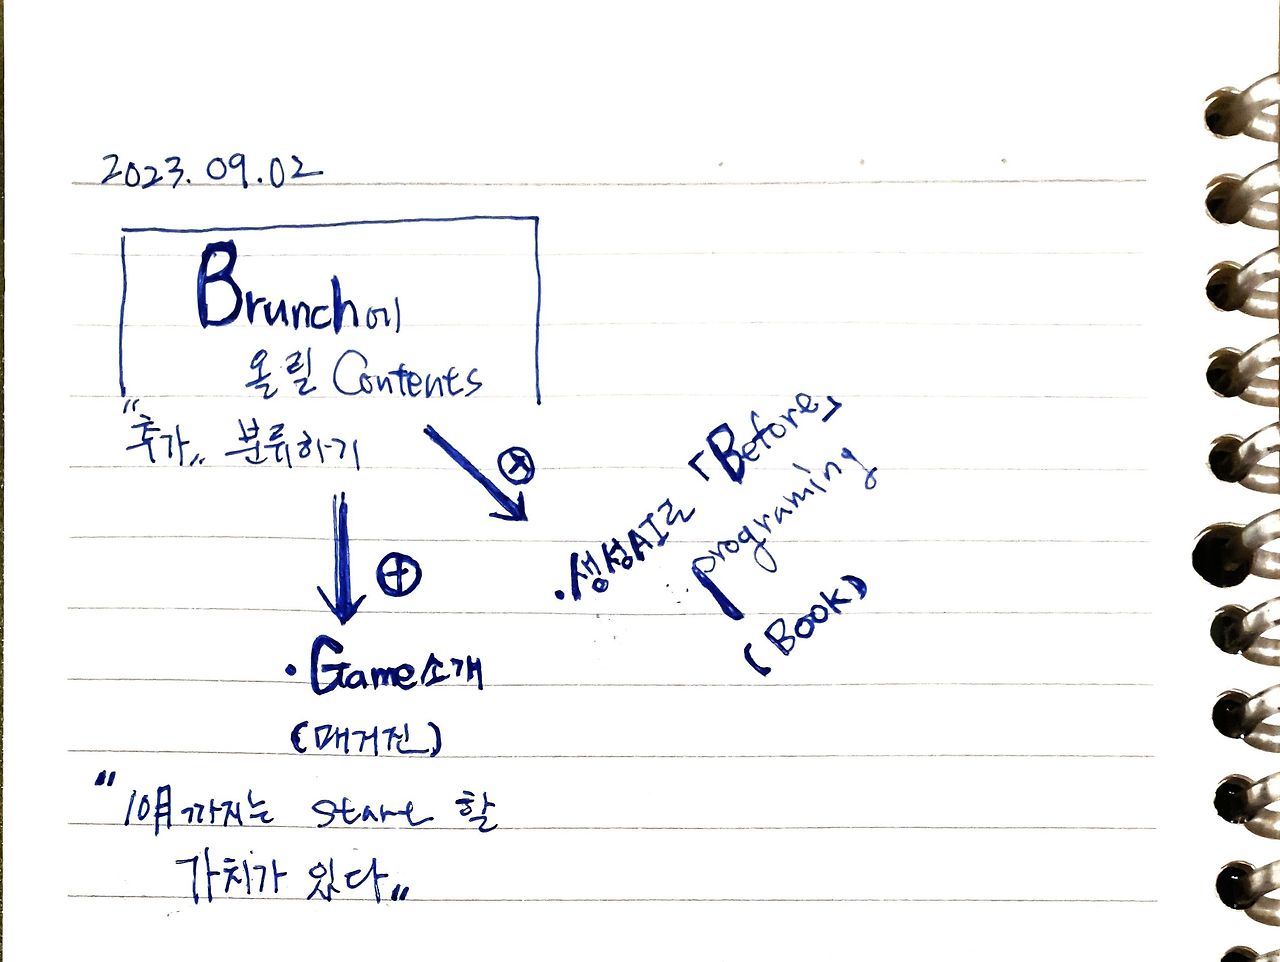 2023.09.02
Brunch에
올릴 Contents
"추가" 분류하기
⊕
⊕
·생성AI로 「Before」
programing
(Book)
·Game소개
(매거진)
"10月까지는 start 할
가치가 있다"